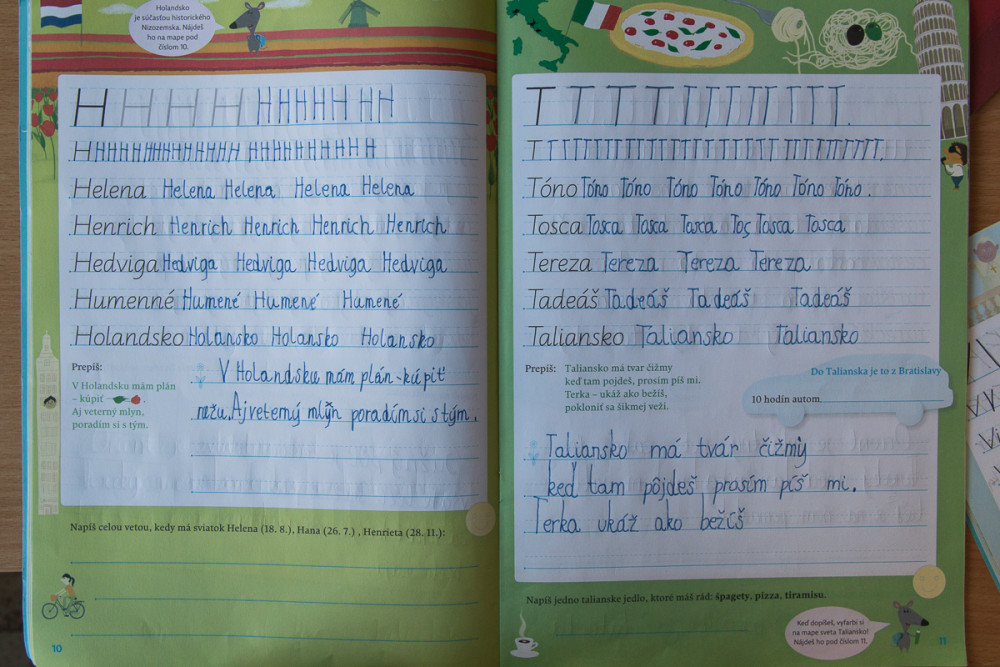 Holandsko
je súčasťou historického
Nizozemska. Nájdeš
ho na mape pod
číslom 10.
H H H H H H H H H H H H
H H H H H H H H H H H H H H H H H H H H H H H
Helena Helena Helena Helena Helena
Henrich Henrich Henrich Henrich Henrich
Hedviga Hedviga Hedviga Hedviga Hedviga
Humenné Humené Humené Humené
Holandsko Holansko Holansko Holansko
Prepíš:
V Holandsku mám plán
– kúpiť
Aj veterný mlyn,
poradím si s tým.
V Holandsku mám plán-kúpiť
ružu. Aj veterný mlýn poradím si s tým.
Napíš celou vetou, kedy má sviatok Helena (18. 8.), Hana (26. 7.) , Henrieta (28. 11.):
10
T T T T T T T T T T T T.
T T T T T T T T T T T T T T T T T T T T T T T T T T.
Tóno Tóno Tóno Tóno Tóno Tóno Tóno Tóno.
Tosca Tosca Tosca Tosca Tosc Tosca Tosca
Tereza Tereza Tereza Tereza
Tadeáš Tadeáš Tadeáš Tadeáš
Taliansko Taliansko Taliansko
Prepíš:
Taliansko má tvar čižmy
keď tam pojdeš, prosím píš mi.
Terka – ukáž ako bežíš,
pokloniť sa šikmej veži.
Do Talianska je to z Bratislavy
10 hodín autom.
Taliansko má tvár čižmy
keď tam pôjdeš prosím píš mi.
Terka ukáž ako bežíš
Napíš jedno talianske jedlo, ktoré máš rád: špagety, pizza, tiramisu.
Keď dopíšeš, vyfarbi si
na mape sveta Taliansko!
Nájdeš ho pod číslom 11.
11